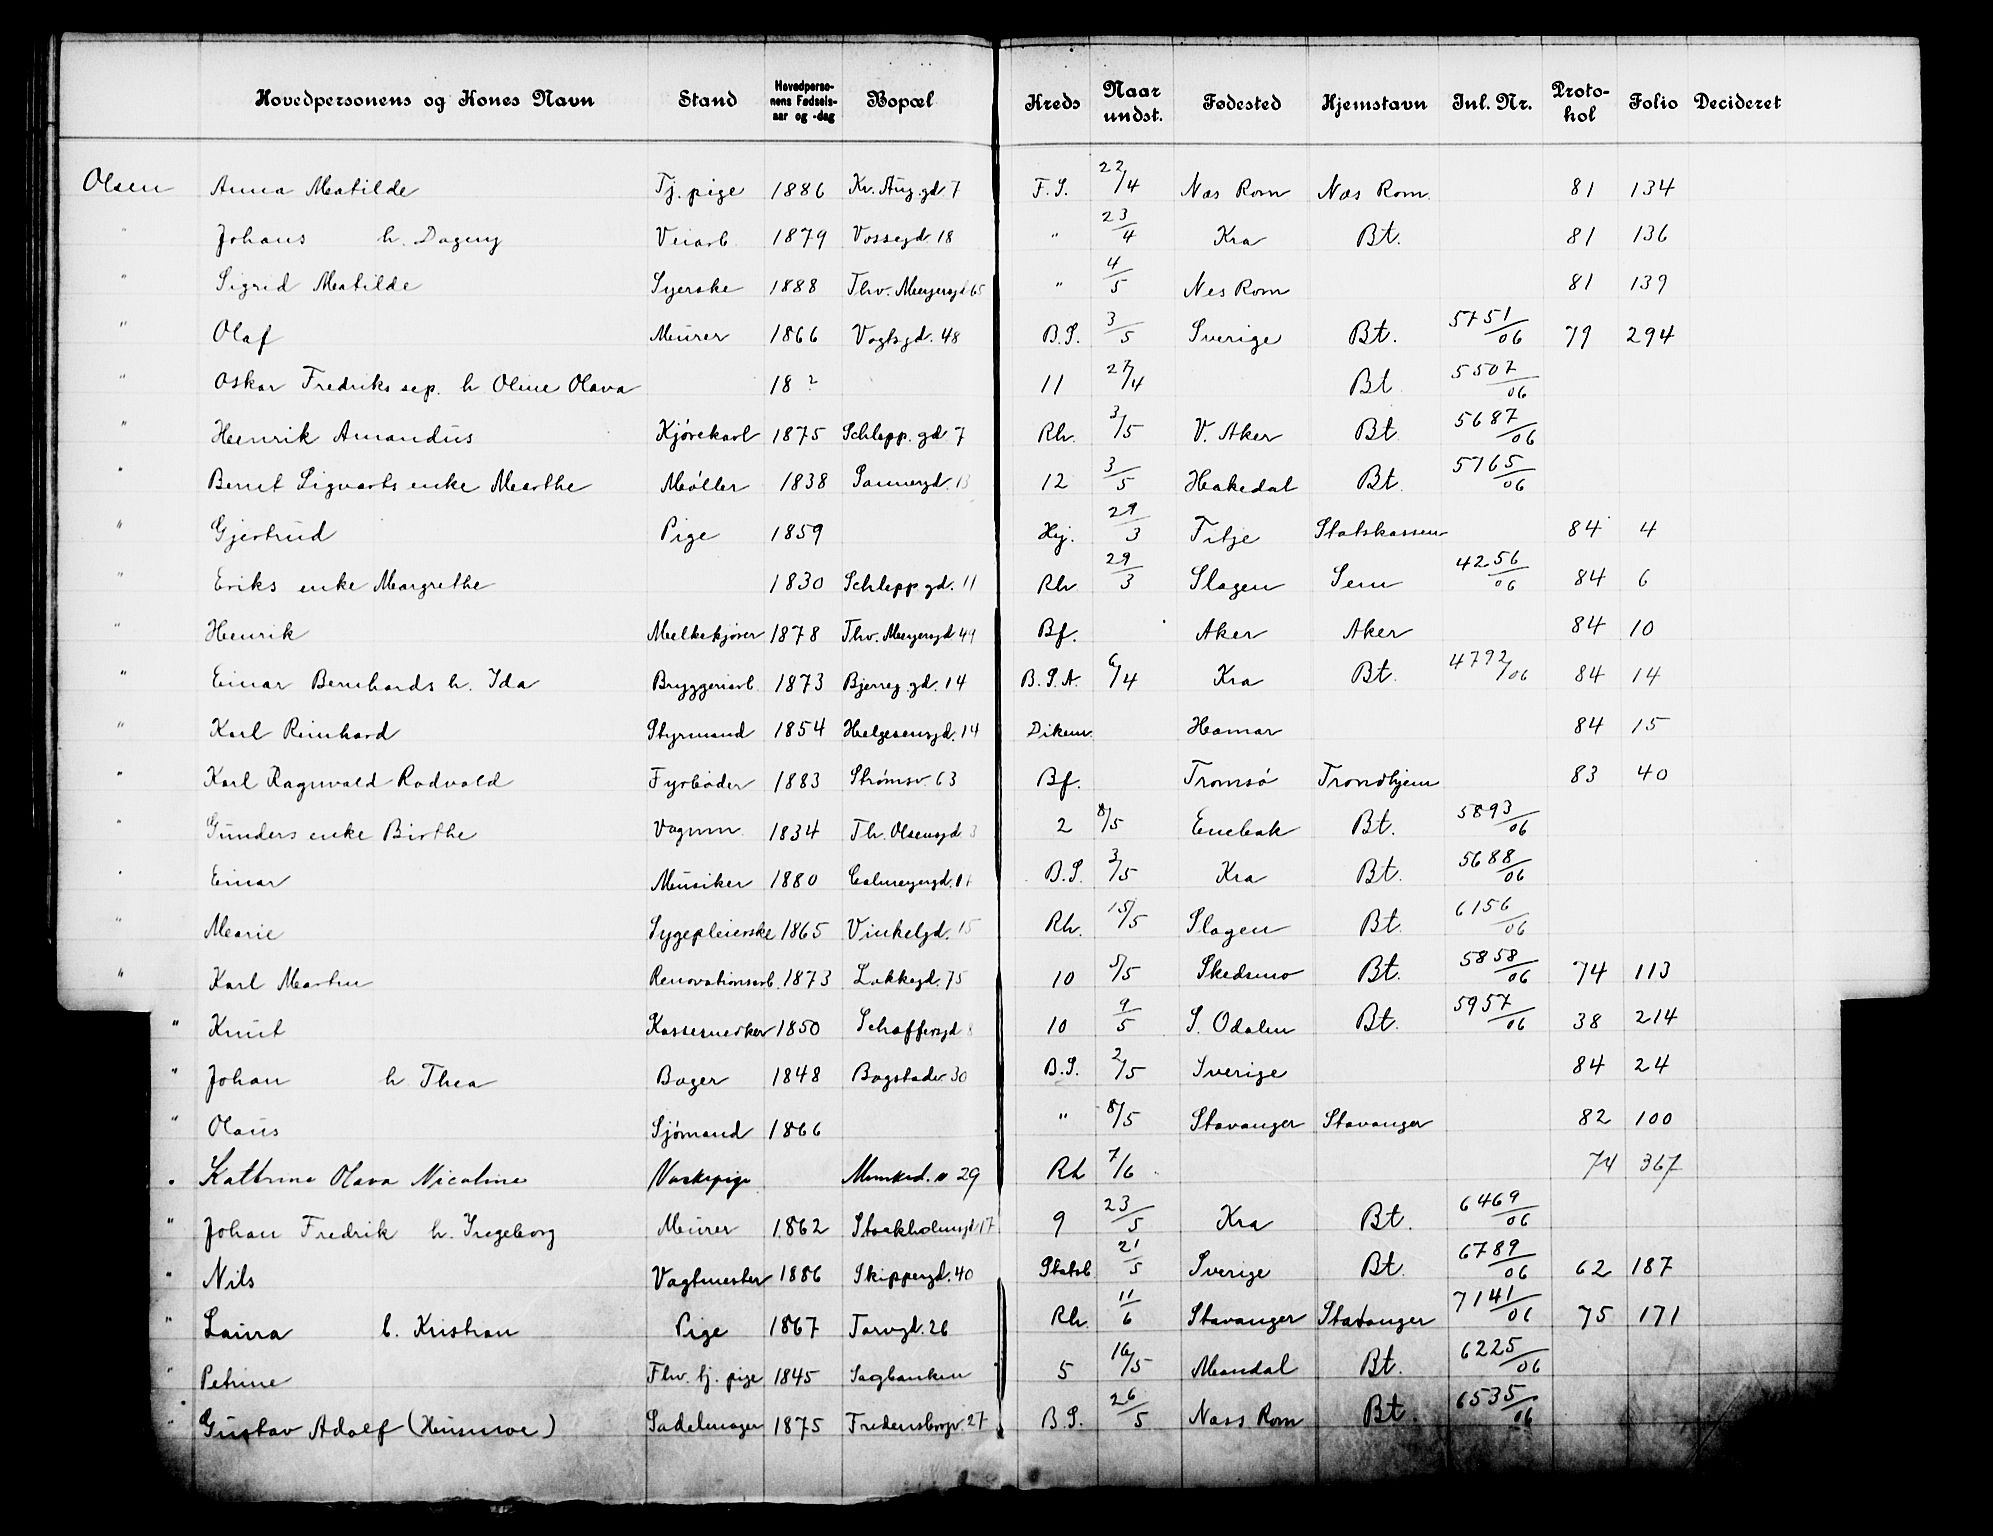 Hovedpersonens og Kones Navn Stand Hovedpersonens Fødselsaar og -dag Bopæl Kreds Naar undst. Fødested Hjemstavn Inl. Nr. Protokol Folio Decideret
Olsen Anna Matilde Tj. pige 1886 Kr. Aug. gd. 7 F. S. 22/4 Næs Rom Næs Rom. 81 134
" Johans h. Dagny Veiarb. 1879 Vossegd. 18 " 23/4 Kra Bt. 81 136
" Sigrid Matilde Syerske 1888 Thv. Meyersgd 65 " 4/5 Nes Rom 81 139
" Olaf Murer 1866 Vogtsgd. 48 B.S. 3/5 Sverige Bt. 5751/06 79 294
" Oskar Fredriks sep. h. Oline Olava 18 ? 11 27/4 Bt 5507/06
" Henrik Amandus Kjørekarl 1875 Schlepp. gd 7 Rh. 3/5 V. Aker Bt. 5687/06
" Bernt Sigvarts enke Marthe Møller 1838 Sannergd. 13 12 3/5 Hakedal Bt. 5765/06
" Gjertrud Pige 1859 Hij. 29/3 Statskassen 84 4
" Eriks enke Margrethe 1830 Schlepp gd. 11 Rh 29/3 Slagen Sem 4256/06 84 6
" Henrik Melkekjører 1878 Thv. Meyersgd 49 Bf. Aker Aker 84 10
" Einar Bernhards h. Ida Bryggeriarb. 1873 Bjerreg. gd. 14 B. S. A. 6/4 Kra Bt. 4792/06 84 14
" Karl Reinhard Styrmand 1854 Helgesensgd. 14 Dikem. Hamar 84 15
" Karl Ragnvald Rodvald Fyrbøder 1883 Strømsv. 63 Bf. Tromsø Trondhjem 83 40
" Gunders enke Birthe Vognm. 1834 Th. Olsensgd 3 2 8/5 Enebak Bt. 5893/06
" Einar Musiker 1880 Calmeyergd. 11 B.S. 3/5 Kra Bt. 5688/06
" Marie Sygepleierske 1865 Vinkelgd. 15 Rh. 15/5 Slagen Bt. 6156/06
" Karl Martin Renovationsarb. 1873 Løkkegd. 75 10 5/5 Skedsmo Bt. 5858/06 74 113
" Knut Kassesnedker 1850 Schaffersgd 8 10 9/5 S. Odalen Bt. 5957/06 38 214
" Johan h. Thea Bager 1848 Bogstadv. 30 B.S. 2/5 Sverige 84 24
" Olaus Sjømand 1866 " 8/5 Stavanger Stavanger 82 100
" Kathrine Olava Nicoline Vaskepige Munked. v 29 Rh 7/6 74 367
" Johan Fredrik h. Ingeborg Murer 1862 Stockholmsgd 17 9 23/5 Kra Bt. 6469/06
" Nils Vagtmester 1886 Skippergd. 40 Statsb 21/5 Sverige Bt. 6789/06 62 187
" Laura b. Kristian Pige 1867 Torvgd. 26 Rh. 11/6 Stavanger Stavanger 7141/06 75 171
" Petrine Fhv. tj. pige 1845 Sagbanken 5 16/5 Mandal Bt. 6225/06
" Gustav Adolf (Husmoe) Sadelmager 1875 Fredensborgv. 27 B.S. 26/5 Næss Rom Bt. 6535/06